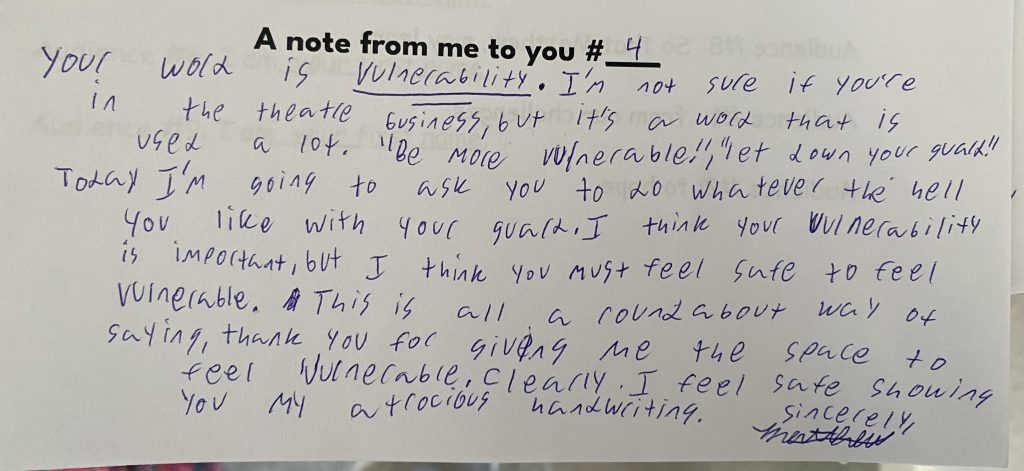 A note from me to you # 4
Your word is vulnerability. I'm not sure if you're
in the theatre business, but it's a word that is
used a lot. "Be more vulnerable!", "let down your guard!"
Today I'm going to ask you to do whatever the hell
you like with your guard. I think your vulnerability
is important, but I think you must feel safe to feel
vulnerable. This is all a roundabout way of
saying, thank you for giving me the space to
feel vulnerable. Clearly. I feel safe showing
you my atrocious handwriting. Sincerely,
Matthew